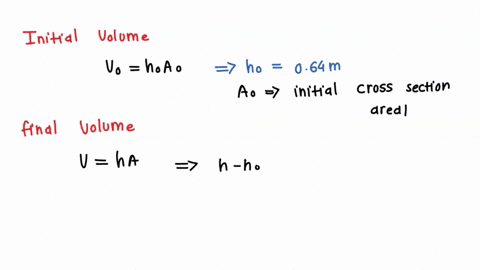 Initial Volume
V₀ = h₀A₀ ⇒ h₀ = 0.64m
A₀ ⇒ initial cross section
area
final Volume
V = hA ⇒ h-h₀